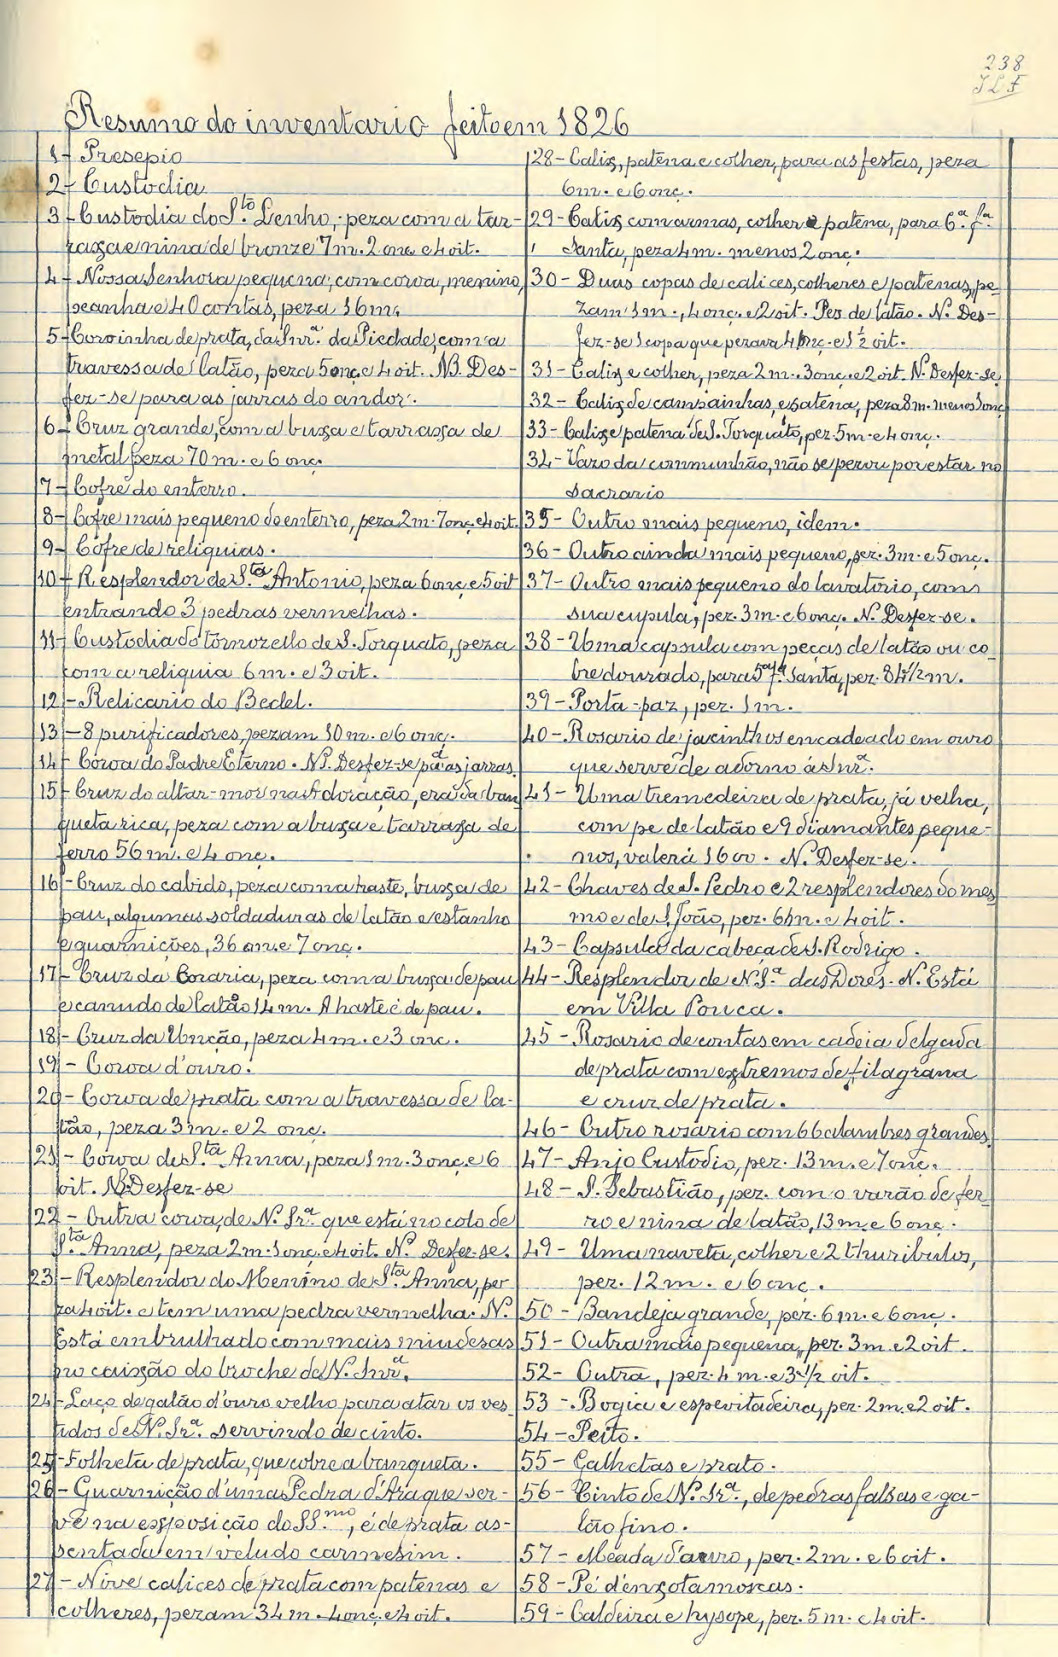 238
Resumo do inventario feito em 1826
1- Presepio
2- Custodia
3- Custodia do S.to Lenho, peza com a tar-
raxa e nina de bronze 7 m. 2 onç. e 4 oit.
4- Nossa Senhora pequena; com coroa, menino,
peanha e 40 contas, peza 16 m.
5- Coroinha de prata, da Snr.a da Piedade, com a
travessa de latão, peza 5 onç. e 4 oit. NB. Des-
fez-se para as jarras do andor.
6- Cruz grande, com a buxa e tarraxa de
metal peza 70 m. e 6 onç.
7- Cofre do enterro.
8- Cofre mais pequeno do enterro, peza 2 m. 7 onç. e 4 oit.
9- Cofre de reliquias.
10- Resplendor de S.ta Antonio, peza 6 onç. e 5 oit
entrando 3 pedras vermelhas.
11- Custodia do tornozello de S. Torquato, peza
com a reliquia 6 m. e 3 oit.
12- Relicario do Bedel.
13- 8 purificadores, pezam 10 m. e 6 onç.
14- Coroa do Padre Eterno. N. Desfez-se p.a as jarras.
15- Cruz do altar-mor na Adoração, era da ban
queta rica, peza com a buxa e tarraxa de
ferro 56 m. e 4 onç.
16- Cruz do cabido, peza com a haste, buxa de
pau, algumas soldaduras de latão e estanho
e guarnições, 36 m. e 7 onç.
17- Cruz da Coraria, peza com a buxa de pau
e canudo de latão 14 m. A haste é de pau.
18- Cruz da Unção, peza 4 m. e 3 onç.
19- Coroa d'ouro.
20- Coroa de prata com a travessa de la-
tão, peza 3 m. e 2 onç.
21- Coroa de S.ta Anna, peza 1 m. 3 onç. e 6
oit. N. Desfez-se
22- Outra coroa, de N. Sr.a que está no colo de
S.ta Anna, peza 2 m. 1 onç. e 4 oit. N. Desfez-se.
23- Resplendor do Menino de S.ta Anna, pe
za 4 oit. e tem uma pedra vermelha. N.
Está embrulhado com mais miudesas
no caixão do broche de N. Snr.a
24- Laço de galão d'ouro velho para atar os ves-
tidos de N. Sr.a servindo de cinto.
25- Folheta de prata, que cobre a banqueta.
26- Guarnição d'uma Pedra d'Ara que ser-
ve na exposição do SS.mo, é de prata as-
sentada em veludo carmesim.
27- Nove calices de prata com patenas e
colheres, pezam 34 m. 4 onç. e 4 oit.
28- Calix, patena e colher, para as festas, peza
6 m. e 6 onç.
29- Calix com armas, colher e patena, para 6.a f.a
Santa, peza 4 m. menos 2 onç.
30- Duas copas de calices, colheres e patenas, pe-
zam 1 m., 4 onç. e 2 oit. Pes de latão. N. Des-
fez-se 1 copa que pezava 4 onç. e 1 1/2 oit.
31- Calix e colher, peza 2 m. 3 onç. e 2 oit. N. Desfez-se
32- Calix de campainhas, e patena, peza 8 m. menos 1 onç
33- Calix e patena de S. Torquato, pez. 5 m. e 4 onç.
34- Vazo da communhão, não se pezou por estar no
sacrario
35- Outro mais pequeno, idem.
36- Outro ainda mais pequeno, pez. 3 m. e 5 onç.
37- Outro mais pequeno do lavatorio, com
sua cupula, pez. 3 m. e 6 onç. N. Desfez-se.
38- Uma capsula com peças de latão ou co-
bre dourado, para 5.a f.a Santa, pez. 8 1/2 m.
39- Porta-paz, pez. 1 m.
40- Rosario de jacinthos encadeado em ouro
que serve de adorno á Snr.a
41- Uma tremedeira de prata, já velha,
com pe de latão e 9 diamantes peque-
nos, valerá 1600. N. Desfez-se.
42- Chaves de S. Pedro e 2 resplendores do mes
mo e de S. João, pez. 6 m. e 4 oit.
43- Capsula da cabeça de S. Rodrigo.
44- Resplendor de N. S.a das Dores. N. Está
em Villa Pouca.
45- Rosario de contas em cadeia delgada
de prata com extremos de filagrana
e cruz de prata.
46- Outro rosario com 66 alambres grandes.
47- Anjo Custodio, pez. 13 m. e 7 onç.
48- S. Sebastião, pez. com o varão de fer-
ro e nina de latão, 13 m. e 6 onç.
49- Uma naveta, colher e 2 thuribulos,
pez. 12 m. e 6 onç.
50- Bandeja grande, pez. 6 m. e 6 onç.
51- Outra mais pequena, pez. 3 m. e 2 oit.
52- Outra, pez. 4 m. e 3 1/2 oit.
53- Bogia e espevitadeira, pez. 2 m. e 2 oit.
54- Peito.
55- Galhetas e prato.
56- Cinto de N. Sr.a, de pedras falsas e ga-
lão fino.
57- Meada d'ouro, pez. 2 m. e 6 oit.
58- Pé d'enxotamoscas.
59- Caldeira e hysope, pez. 5 m. e 4 oit.